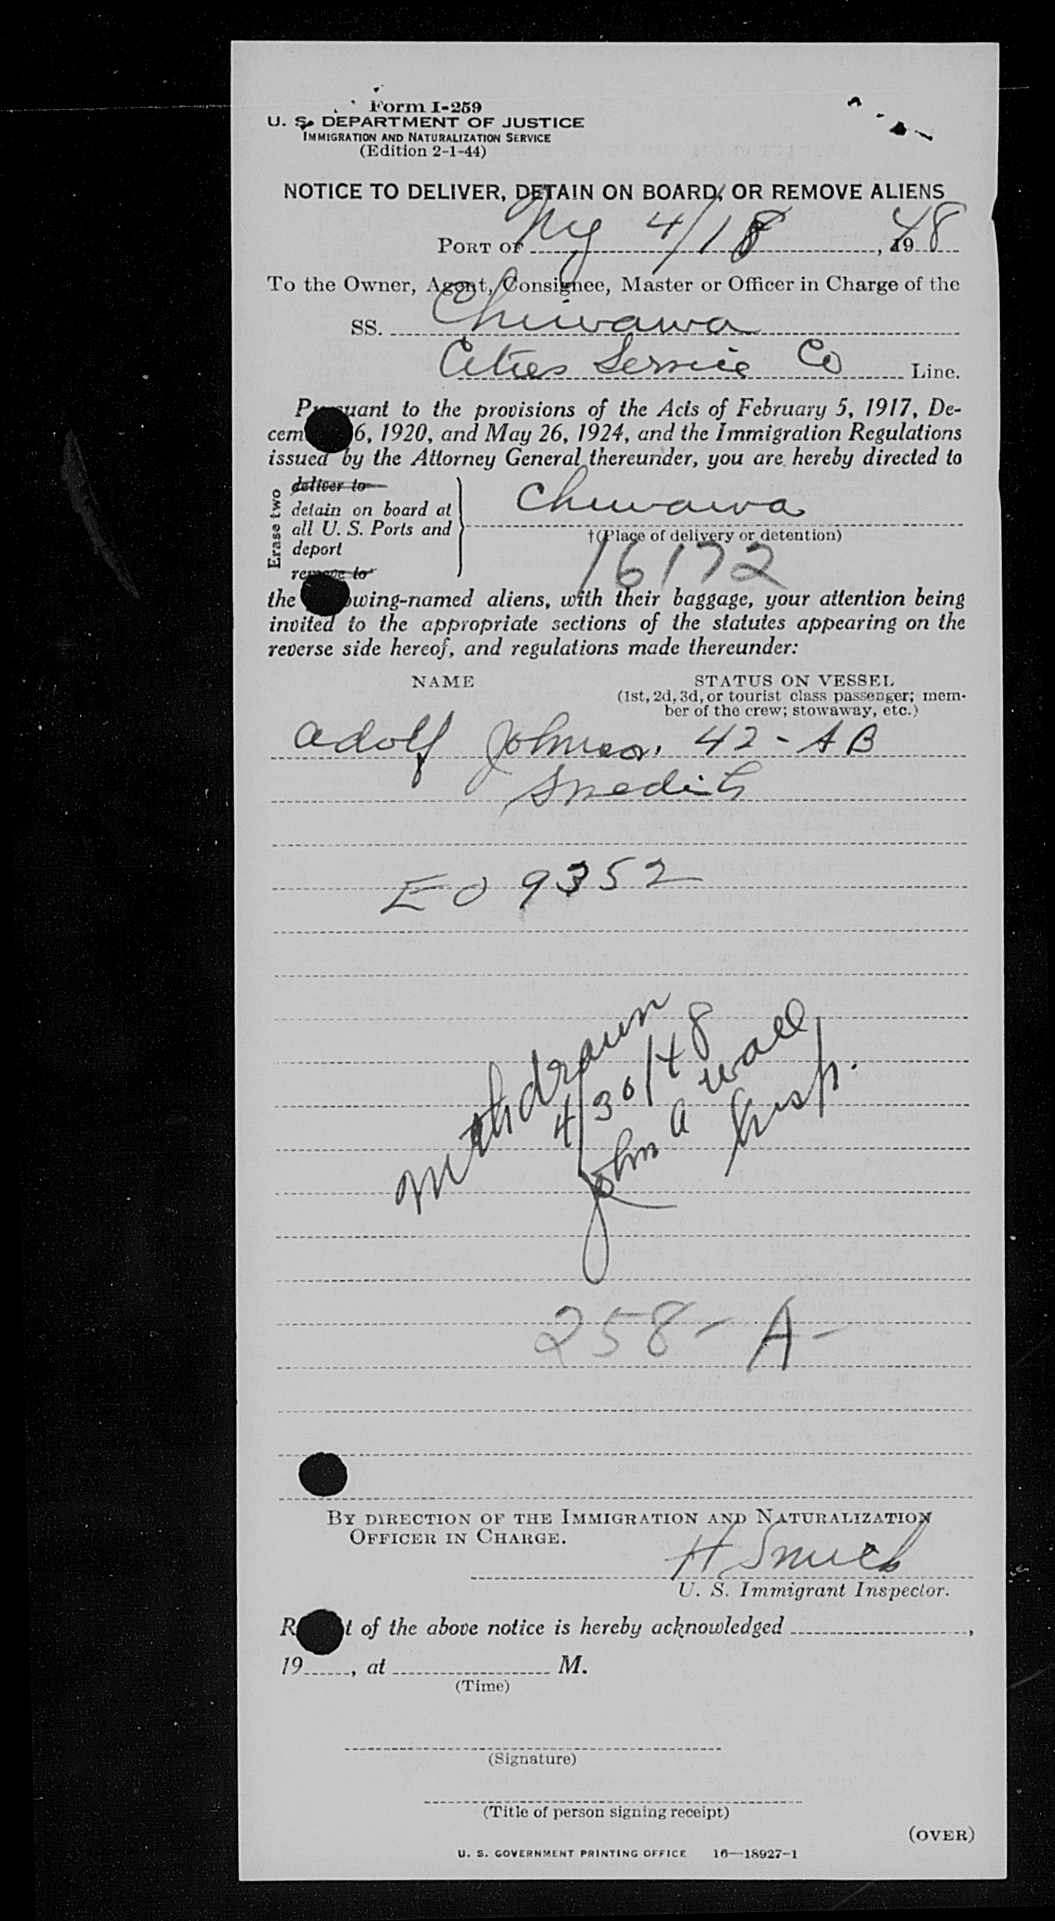 Form I-259
U. S. DEPARTMENT OF JUSTICE
IMMIGRATION AND NATURALIZATION SERVICE
(Edition 2-1-44)
NOTICE TO DELIVER, DETAIN ON BOARD, OR REMOVE ALIENS
PORT OF NY 4/18, 1948
To the Owner, Agent, Consignee, Master or Officer in Charge of the
SS. Chiwawa
Cities Service Co Line.
Pursuant to the provisions of the Acts of February 5, 1917, De-
cem 6, 1920, and May 26, 1924, and the Immigration Regulations
issued by the Attorney General thereunder, you are hereby directed to
Erase two
deliver to
detain on board at
all U. S. Ports and
deport
remove to
Chiwawa
†(Place of delivery or detention)
16172
the owing-named aliens, with their baggage, your attention being
invited to the appropriate sections of the statutes appearing on the
reverse side hereof, and regulations made thereunder:
NAME STATUS ON VESSEL
(1st, 2d, 3d, or tourist class passenger; mem-
ber of the crew; stowaway, etc.)
Adolf 42 - AB
Swedish
EO 9352
Withdrawn
4/30/48
John A Wall
Insp.
258 - A -
BY DIRECTION OF THE IMMIGRATION AND NATURALIZATION
OFFICER IN CHARGE.
H
U. S. Immigrant Inspector.
R t of the above notice is hereby acknowledged ,
19 , at M.
(Time)
(Signature)
(Title of person signing receipt)
(OVER)
U. S. GOVERNMENT PRINTING OFFICE 16—18927-1